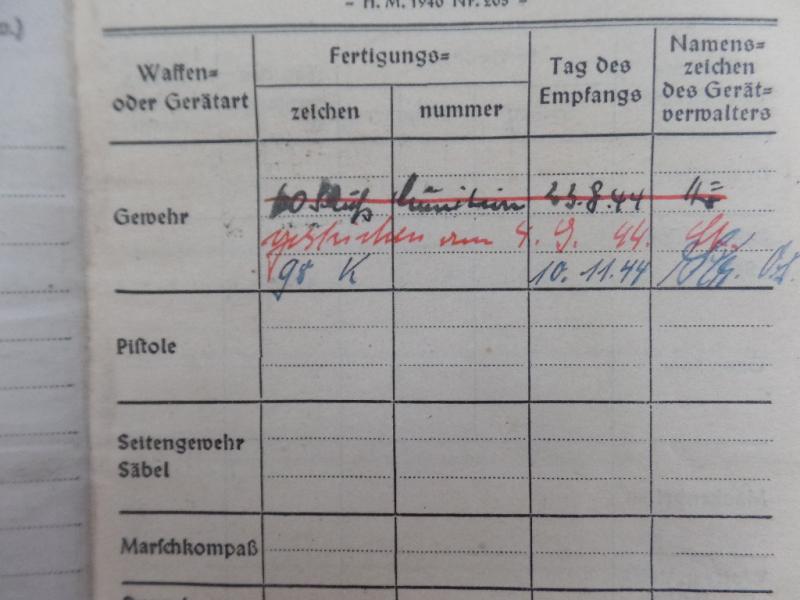 – H. M. 1940 Nr. 205 –
Waffen=
oder Gerätart
Fertigungs=
zeichen
nummer
Tag des
Empfangs
Namens=
zeichen
des Gerät=
verwalters
Gewehr
60 Schuß Munition 23.8.44
gestrichen am 4. 9. 44.
98 K 10. 11. 44
Pistole
Seitengewehr
Säbel
Marschkompaß